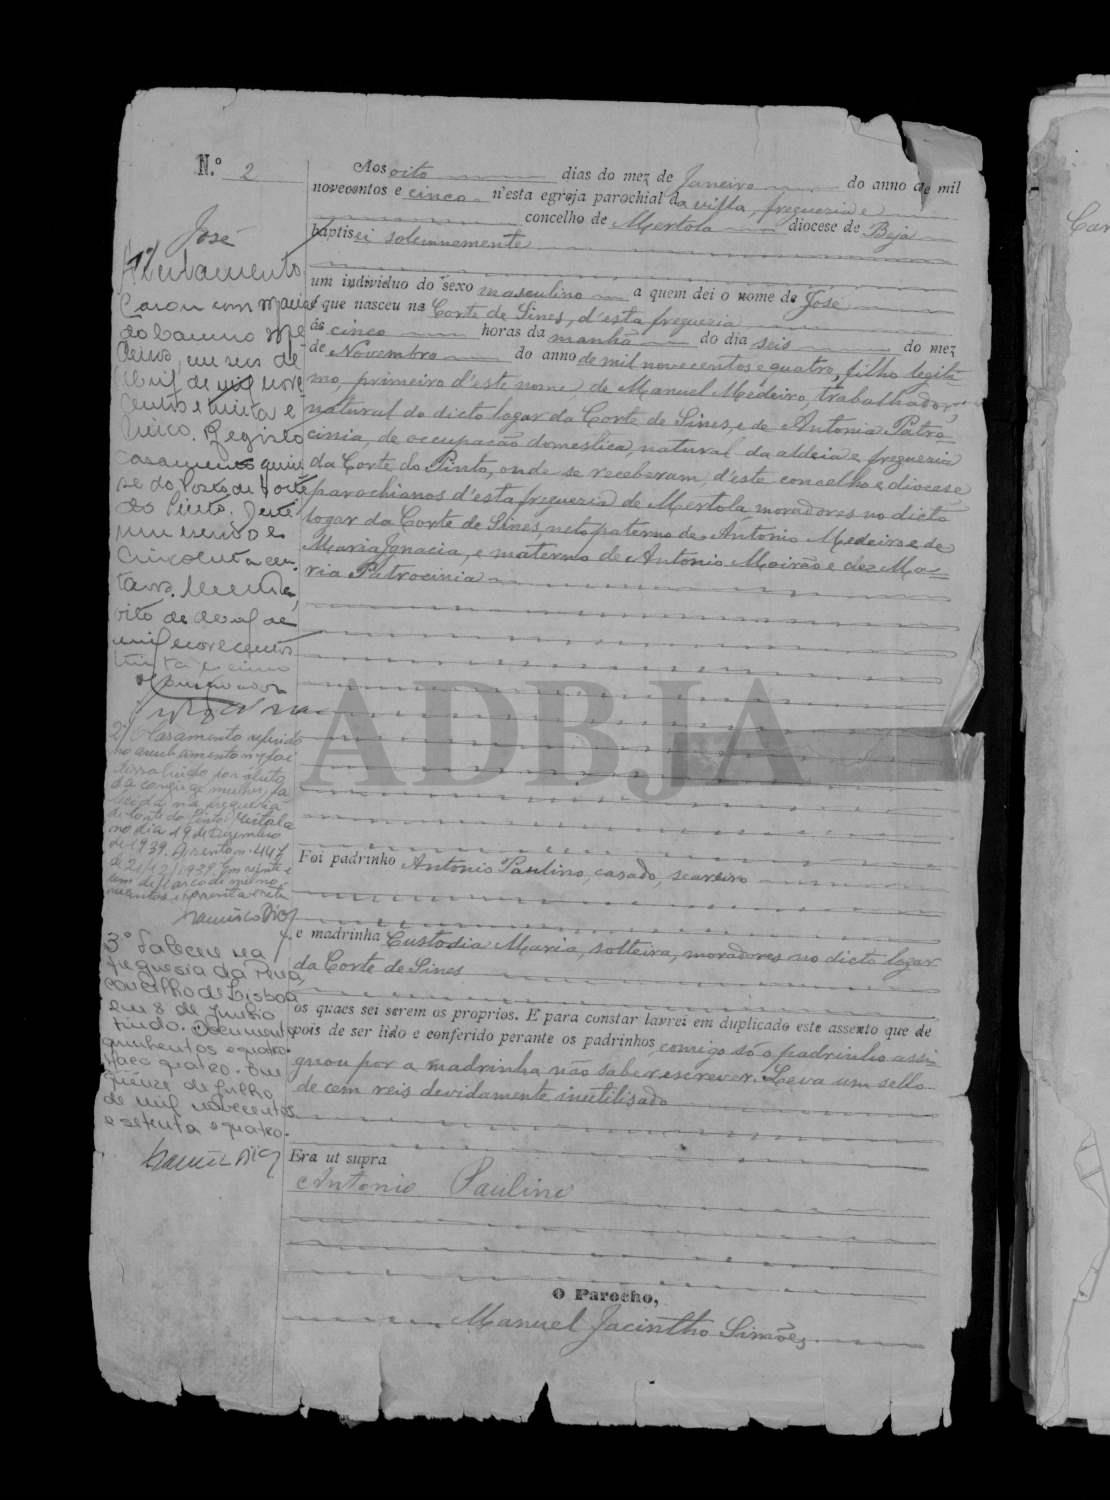 N.º 2
José
Aos oito dias do mez de Janeiro do anno de mil
novecentos e cinco n'esta egreja parochial da villa, freguezia e
concelho de Mertola diocese de Beja
baptisei solemnemente
um individuo do sexo masculino a quem dei o nome de José
e que nasceu na Corte de Sines, d'esta freguezia
ás cinco horas da manhã do dia seis do mez
de Novembro do anno de mil novecentos e quatro, filho legiti
mo, primeiro d'este nome, de Manuel Medeiro, trabalhador,
natural do dicto logar da Corte de Sines, e de Antonia Patro-
cinia, de occupação domestica, natural da aldeia e freguezia
da Corte do Pinto, onde se receberam, d'este concelho e diocese
parochianos d'esta freguezia de Mertola moradores no dicto
logar da Corte de Sines, neto paterno de Antonio Medeiro e de
Maria Ignacia, e materno de Antonio Moirão e de Ma-
ria Patrocinia
Foi padrinho Antonio Paulino, casado, seareiro
e madrinha Custodia Maria, solteira, moradores no dicto logar
da Corte de Sines
os quaes sei serem os proprios. E para constar lavrei em duplicado este assento que de
pois de ser lido e conferido perante os padrinhos, comigo só o padrinho assi-
gnou por a madrinha não saber escrever. Leva um sello
de cem reis devidamente inutilisado
Era ut supra
Antonio Paulino
O Parocho,
Manuel Jacintho Simões
1º/
Casou com
de
Registo
do Posto de Corte
do Pinto.
um escudo e
cincoenta cen-
tavos.
oito de abril de
mil novecentos
trinta e cinco
2º/ O casamento referido
no averbamento nº 1 foi
dissolvido por óbito
da conjuge mulher, fa-
lecida na freguesia
de Corte do Pinto, Mertola
no dia 19 de Dezembro
de 1939. Assento nº 447
de 21/12/1939. Em vinte e
um de Março de mil no-
Francisco Dias
3º Faleceu na
freguesia da Pena,
concelho de Lisboa
em 8 de Junho
findo. Documento
quinhentos e quatro.
Maço quatro. Em
quinze de Julho
de mil novecentos
e setenta e quatro.
ADBJA